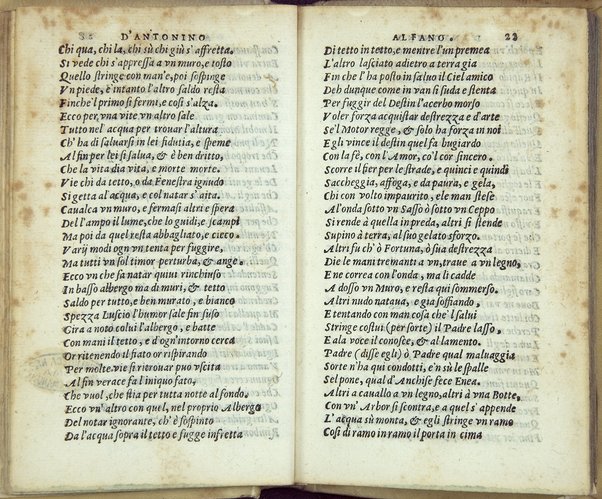 D'ANTONINO
Chi qua, chi la, chi sù chi giù s'affretta.
Si vede chi s'appressa a vn muro, e tosto
Quello stringe con man'e, poi sospinge
Vn piede, e intanto l'altro saldo resta
Finche'l primo si fermi, e cosi s'alza.
Ecco per, vna vite vn altro sale
Tutto nell'acqua per trouar l'altura
Ch'ha di saluarsi in lei fidutia, e speme
Al fin per lei si salua, & è ben dritto,
Che la vita dia vita, e morte morte.
Vie chi da tetto, o da Fenestra ignudo
Si getta al'acqua, e col natar s'aita.
Caualca vn muro, e fermasi altri e spera
Del l'ampo il lume, che lo guidi, e scampi
Ma poi da quel resta abbagliato, e cieco.
Varij modi ogn vn tenta per fuggire,
Ma tutti vn sol timor perturba, & ange.
Ecco vn che sa natar quiui rinchiuso
In basso albergo ma di muri, & tetto
Saldo per tutto, e ben murato, e bianco
Spezza Luscio l'humor sale sin suso
Gira a noto colui l'albergo, e batte
Con mani il tetto, e d'ogn'intorno cerca
Or ritenendo il fiato or rispirando
Per molte vie si ritrouar puo vscita
Al fin verace fa l'iniquo fato,
Che vuol, che stia per tutta notte al fondo.
Ecco vn' altro con quel, nel proprio Albergo
Del notar ignorante, ch'è sospinto
Da l'acqua sopra il tetto e fugge infretta
ALFANO. 22
Di tetto in tetto, e mentre l'un premea
L'altro lasciato adietro a terra gia
Fin che l'ha posto in saluo il Ciel amico
Deh dunque come in van si suda e stenta
Per fuggir del Destin l'acerbo morso
Voler forza acquistar destrezza e d'arte
Se'l Motor regge, & solo ha forza in noi
Egli vince il destin quel fa bugiardo
Con la fè, con l'Amor, co'l cor sincero.
Scorre il fier per le strade, e quinci e quindi
Saccheggia, affoga, e da paura, e gela,
Chi con volto impaurito, ele man stese
Al'onda sotto vn Sasso ò sotto vn Ceppo
Si rende à quella in preda, altri si stende
Supino à terra, al suo gelato sforzo.
Altri fu ch' ò Fortuna, ò sua destrezza
Die le mani tremanti a vn, traue a vn legno,
E ne correa con l'onda, ma li cadde
A dosso vn Muro, e resta qui sommerso.
Altri nudo nataua, e gia soffiando,
E tentando con man cosa che'l salui
Stringe costui (per sorte) il Padre lasso,
E ala voce il conosce, & al lamento.
Padre (disse egli) ò Padre qual maluaggia
Sorte n'ha qui condotti, e'n sù le spalle
Sel pone, qual d'Anchise fece Enea.
Altri a cauallo a vn legno, altri à vna Botte,
Con vn' Arbor si scontra, e a quel s' appende
L'acqua sù monta, & egli stringe vn ramo
Cosi di ramo in ramo il porta in cima